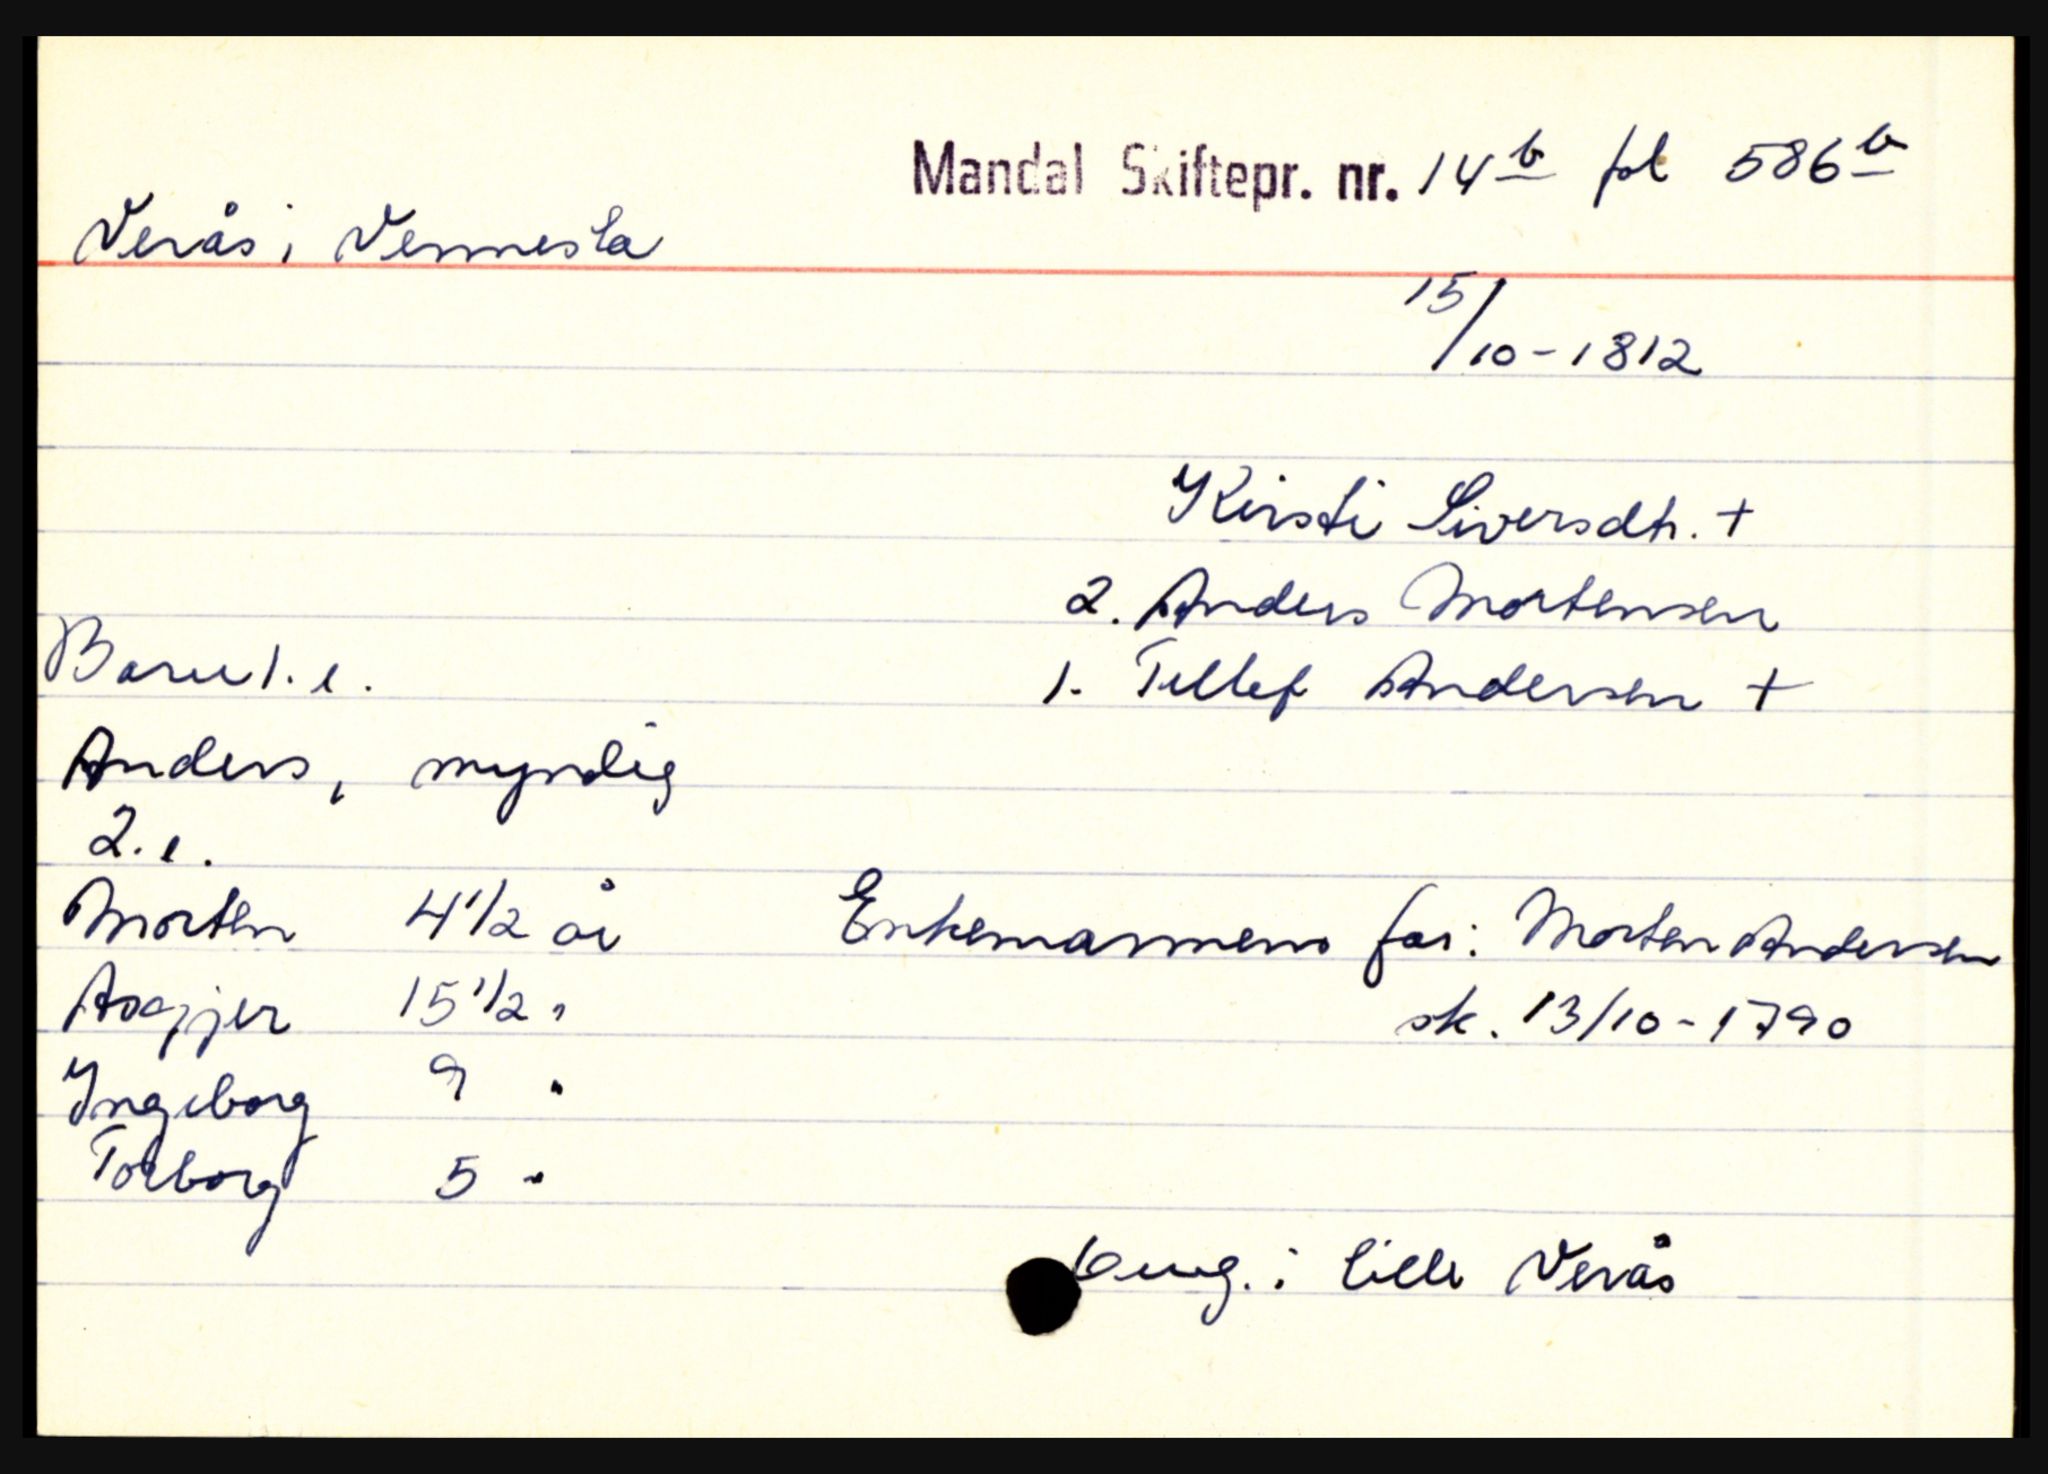 Mandal Skiftepr. nr. 14b fol 586b
Verås i Vennesla
15/10-1812
Kirsti Siversdtr. +
2. Anders Mortensen
Barn 1. e.
1. Tellef Andersen +
Anders, myndig
2. e.
Morten 4 1/2 år
Enkemannens far: Morten Andersen
Asgjer 15 1/2 "
sk. 13/10-1790
Ingeborg 9 "
Torborg 5 "
i Lille Verås